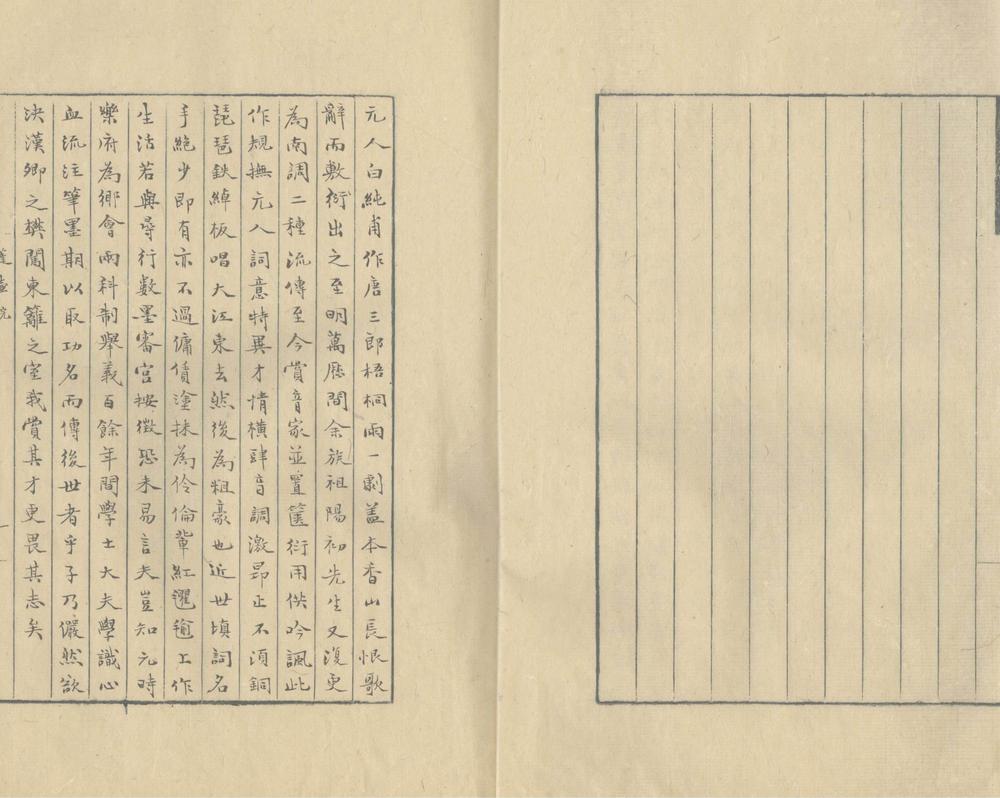 元人白純甫作唐三郎梧桐雨一劇盖本香山長恨歌
辭而敷衍出之至明萬厯間余族祖陽初先生又復更
為南調二種流傳至今賞音家並置篋衍用供吟諷此
作規撫元人詞意特異才情橫肆音調激昂正不須銅
琵琶鉄綽板唱大江東去然後為粗豪也近世填詞名
手絶少即有亦不過傭債塗抹為伶倫輩紅氍毹上作
生活若與尋行數墨審宫按徴恐未易言夫豈知元時
樂府為鄉會兩科制舉義百餘年間學士大夫學識心
血流注筆墨期以取功名而傳後世者乎子乃儼然欲
決漢卿之樊闖東籬之室我賞其才更畏其志矣